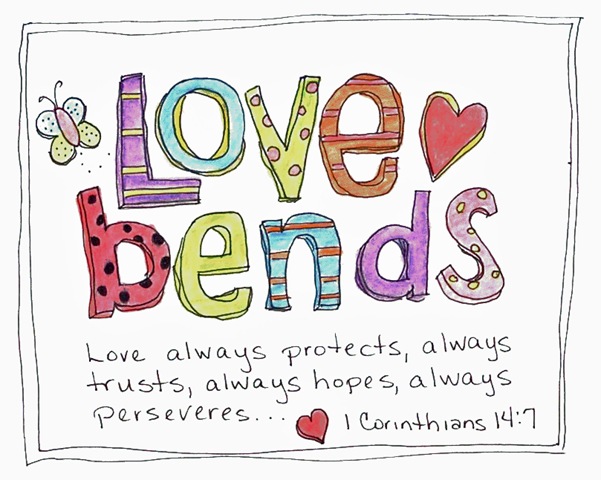 Love
bends
Love always protects, always
trusts, always hopes, always
perseveres...
1 Corinthians 14:7